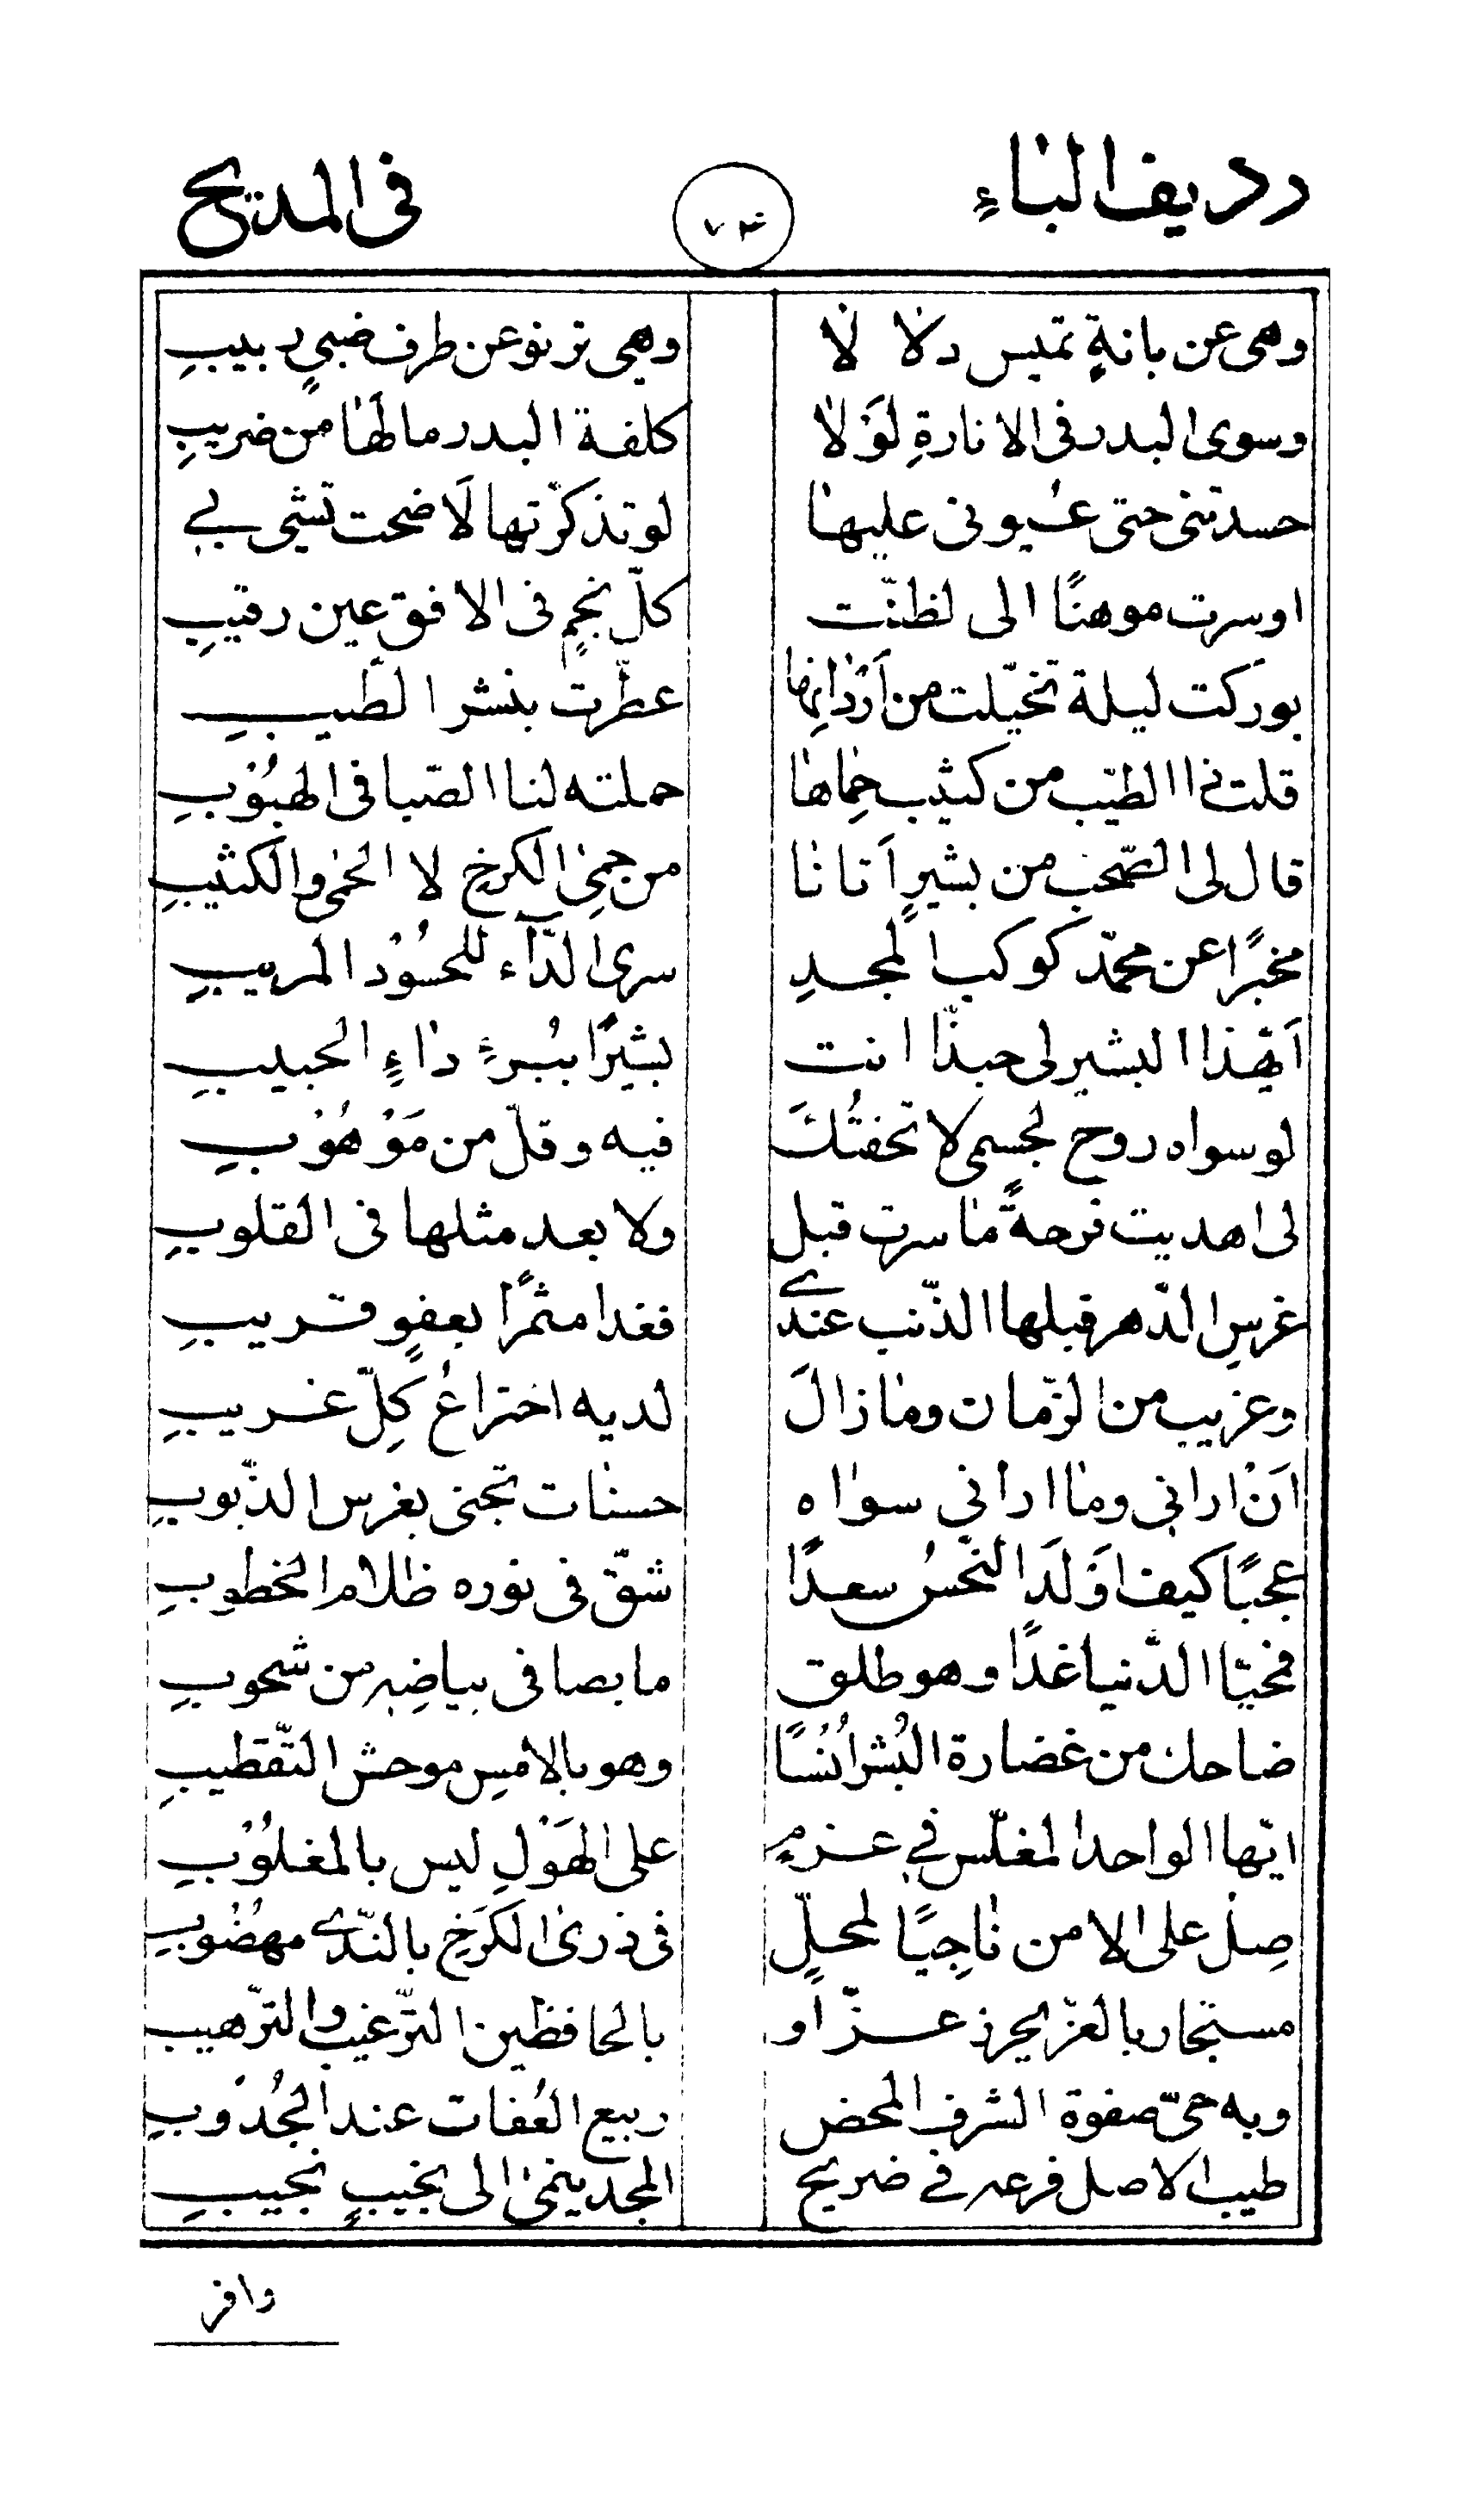 رديف الباء في المديح
٧٣
وهي عن بانةٍ تميس دلالا لا وهي ترنو عن طرف ضبيٍ ربيبِ
وسوى البدر في الانارةِ لَوْلا كلفة البدر ما لَهَا من ضريبِ
حسدتني حتى عيوني عليها لو تذكّرتها لَاضحت تشي بي
او سرت موهنًا الى لظنّت كلّ نجمٍ في الافق عين رقيبِ
بوركت ليلة تخيّلت من اَرْدَانِها عطّرت بنشر الطّيبِ
قلت ذا الطيّب من كثيب حِماها حملته لنا الصّبا في الهبُوْبِ
قال لي الصّحب من بشيرٍ اَتانا من حِمىٰ الكرخ لا الحمىٰ والكثيبِ
مخبرًا عن محمّد كوكب المجدِ سرى الدّاء للحسُوْد المريبِ
اَيّهذا البشير لي حبذّا انت بشيرًا ببُرءِ داءِ الحبيبِ
لو سواه روح لجسمي لاتحفتُكَ فيه وقلّ من مَوْهُوْبِ
لي اهديت فرحةً ما سرت قبل ولا بعد مثلها في القلوبِ
غرس الدّهر قبلها الذّنب عندي فغدا مثمرًا بعفوٍ قريبِ
وغريب من الزّمان وما زالَ لديه اختراعُ كلِّ غريبِ
اَنْ اراني وما اراني سواه حسنات تجنى بغرس الذّنوبِ
عجبًا كيف اَوَلَدَ النّحسُ سعدًا شقّ في نوره ظلام الخطوبِ
فمحيّا الدّنيا غدًا وهو طلق ما بصافي بياضِه من شحوبِ
ضاحك من غضارة البُشر اُنْسًا وهو بالامسِ موحش التّقطيبِ
ايّها الواحد المغلّس في عزمٍ على الهَوْلِ ليس بالمغلُوْبِ
صِل على الامن ناجِيًا لمحلٍّ في ذرى الكَرَخ بالنّدى مهضُوبِ
مستجار بالعزّ يحرز عزّا و بالحافظين التّرغيب والترّهيب
وبه حيّ صفوة الشرف المحض ربيع العُفات عند الجُدُوبِ
طيب الاصل فرعه في ضريح المجد ينمىٰ الى نجيبٍ نجيبِ
وافر